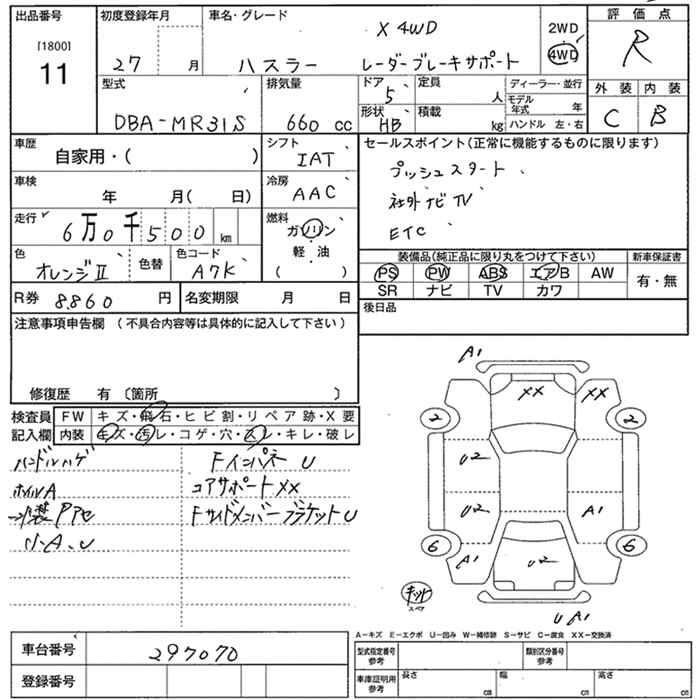 出品番号 初度登録年月 車名・グレード 評価点
[1800] 11 27 月 X 4WD 2WD 4WD R
ハスラー レーダーブレーキサポート
型式 排気量 ドア 5 定員 人 ディーラー・並行 外装 内装
DBA-MR31S 660 cc 形状 HB 積載 kg モデル年式 年 C B
ハンドル 左・右
車歴 自家用・( ) シフト IAT セールスポイント(正常に機能するものに限ります)
プッシュスタート
車検 年 月( 日) 冷房 AAC 社外ナビTV
走行 6万0千500km 燃料 ガソリン ETC
軽・油
( )
色 オレンジⅡ 色替 色コード A7K 装備品(純正品に限り丸をつけて下さい) 新車保証書
PS PW ABS エアB AW 有・無
SR ナビ TV カワ
R券 8860 円 名変期限 月 日 後日品
注意事項申告欄 (不具合内容等は具体的に記入して下さい)
修復歴 有〔箇所 〕
検査員 FW キズ・飛石・ヒビ割・リペア跡・X要
記入欄 内装 キズ・汚レ・コゲ・穴・スレ・キレ・破レ
ハンドルハゲ Fインパネ U
ホイルA コアサポートXX
外装アアセ FサイドメンバーブラケットU
小A、U
A1
XX XX
2 2
U2
U2 A1
6 6
A1 U2
キット
スペア
U A1
A-キズ E-エクボ U-凹み W-補修跡 S-サビ C-腐食 XX-交換済
車台番号 297070 型式指定番号 参考 類別区分番号 参考
登録番号 車庫証明用 参考 長さ cm 幅 cm 高さ cm